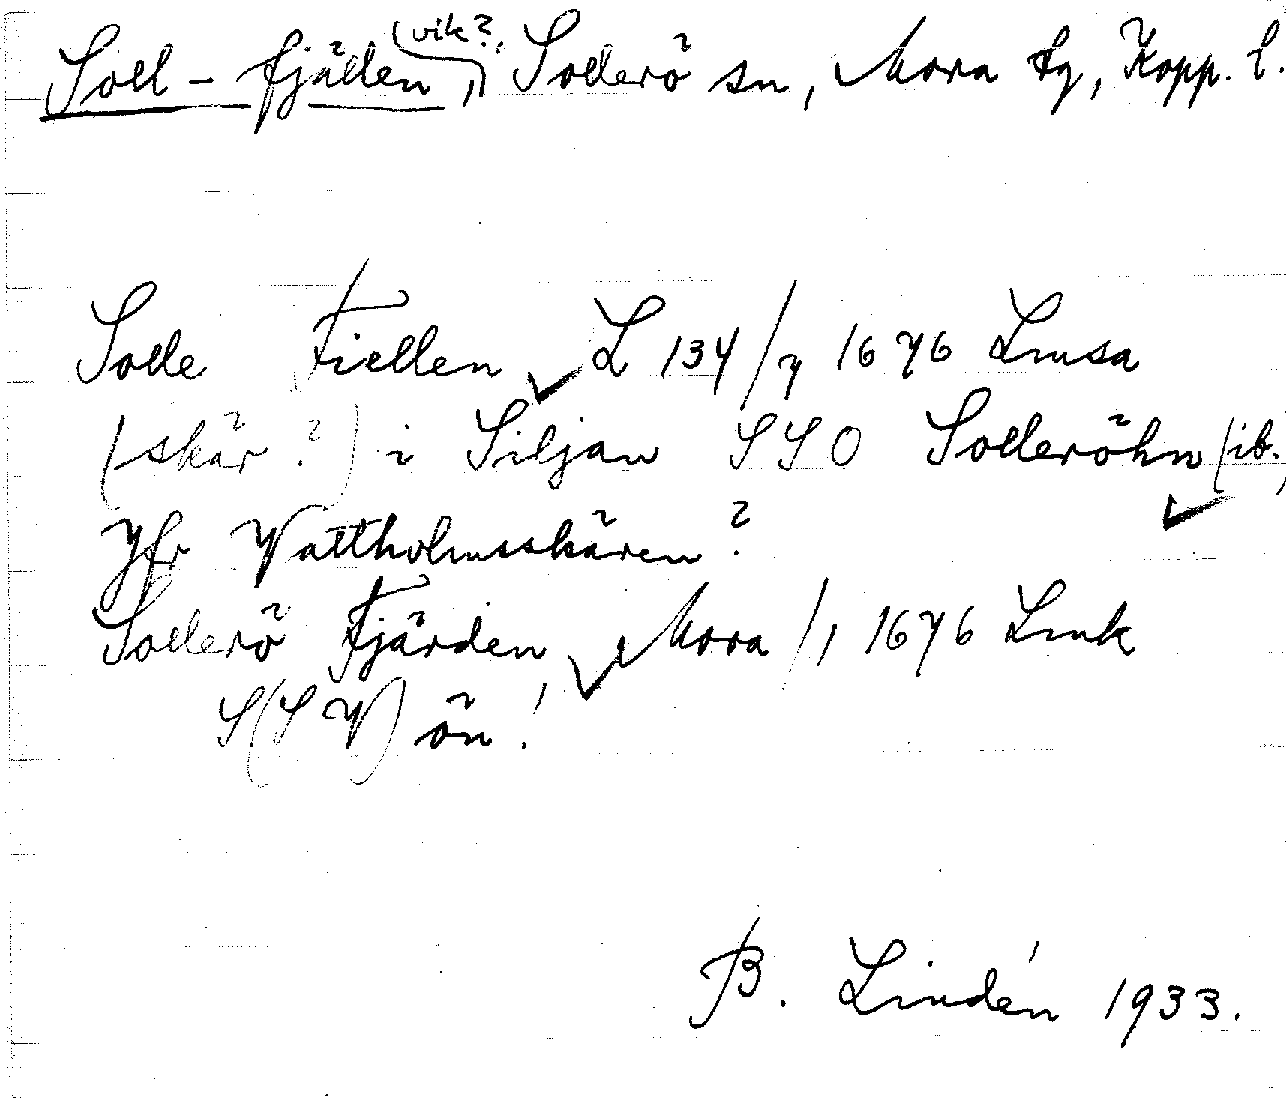 (vik?)
Soll-fjällen, Sollerö sn, Mora tg, Kopp. l.
Solle Fiellen L 134/7 1676 Lmsa
(-skär?) i Siljan SSO Solleröhn (ib.,
Jfr Vattholmsskären?
Sollerö Fjärden Mora /1 1676 Lmk
S(SV) ön!
B. Lindén 1933.